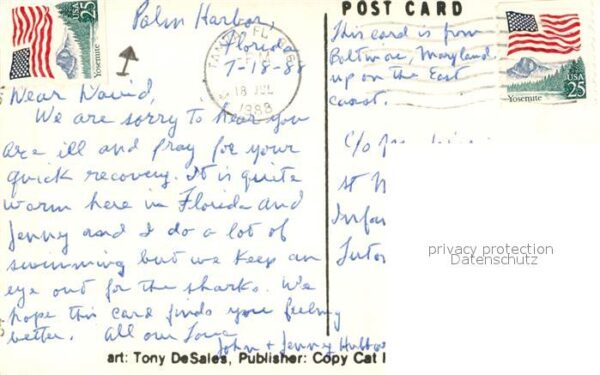 Palm Harbor,
Florida
7-18-88
Dear David,
We are sorry to hear you
are ill and pray for your
quick recovery. It is quite
warm here in Florida and
Jenny and I do a lot of
swimming but we keep an
eye out for the sharks. We
hope this card finds you feeling
better. All our Love
John + Jenny
art: Tony DeSales, Publisher: Copy Cat
POST CARD
This card is from
Baltimore, Maryland
up on the East
coast.
c/o
st
privacy protection
Datenschutz
TAMPA, FL
18 JUL
1988
25
Yosemite
USA
25
Yosemite